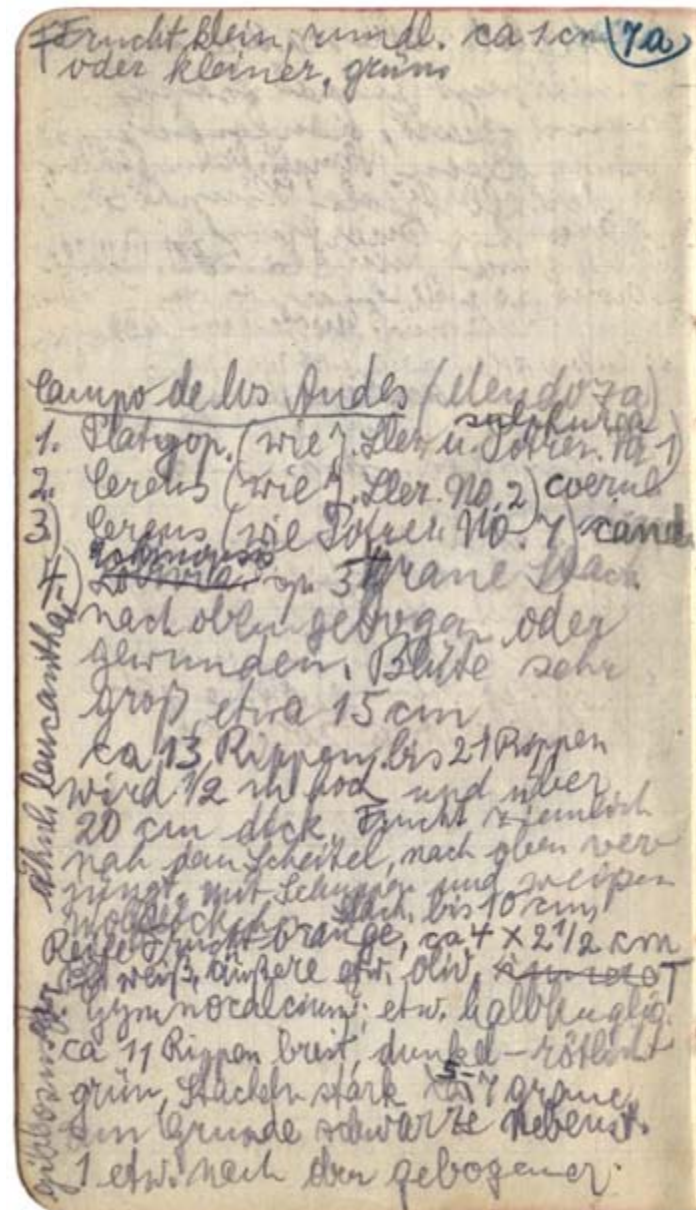 Frucht klein, rundl. ca 1 cm (7a)
oder kleiner, grün
Campo de los Andes (Mendoza)
sulphurea
1. Platyop. (wie J. Ller. u. Potrer. Nr 1)
2. Cereus (wie J. Ller. No. 2) coerul
3) Cereus (wie Potrer. No. 7) cand
Echinopsis
4.) Lobivia sp 3 graue Stach.
nach oben gebogen oder
gewunden. Blüte sehr
groß, etwa 15 cm
ca 13 Rippen, bis 21 Rippen
wird 1/2 m hoch und über
20 cm dick, Frucht ziemlich
nah dem Scheitel, nach oben ver
jüngt, mit Schuppen und weißen
Stach. bis 10 cm,
Reife Frucht orange, ca 4 x 2 1/2 cm
weiß, äußere etw. oliv,
Gymnocalcium; etw. halbkuglig.
ca 11 Rippen breit, dunkel-rötlich
grün, Stacheln stark 5-7 graue,
am Grunde schwarze Nebenst.
1 etw. nach oben gebogener.
ähnl. leucantha
gibbosum